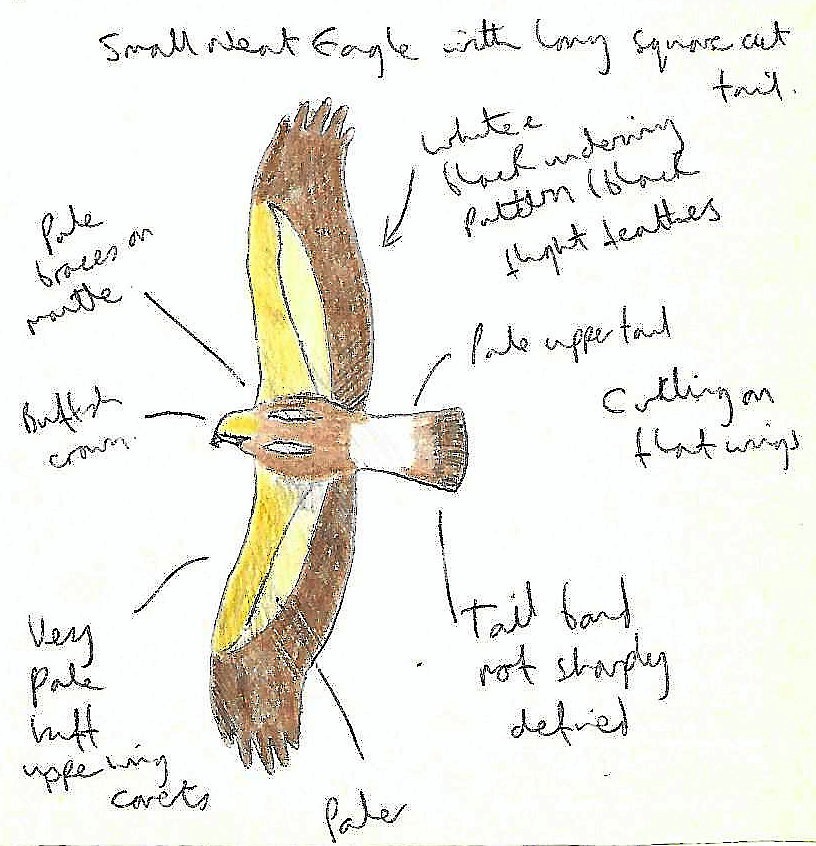 Small Neat Eagle with long square cut
tail.
White &
black underwing
pattern (black
flight feathers
Pale
braces on
mantle
Pale upper tail
Buffish
crown.
Circling on
flat wings
Very
pale
buff
upperwing
coverts
Tail band
not sharply
defined
Paler